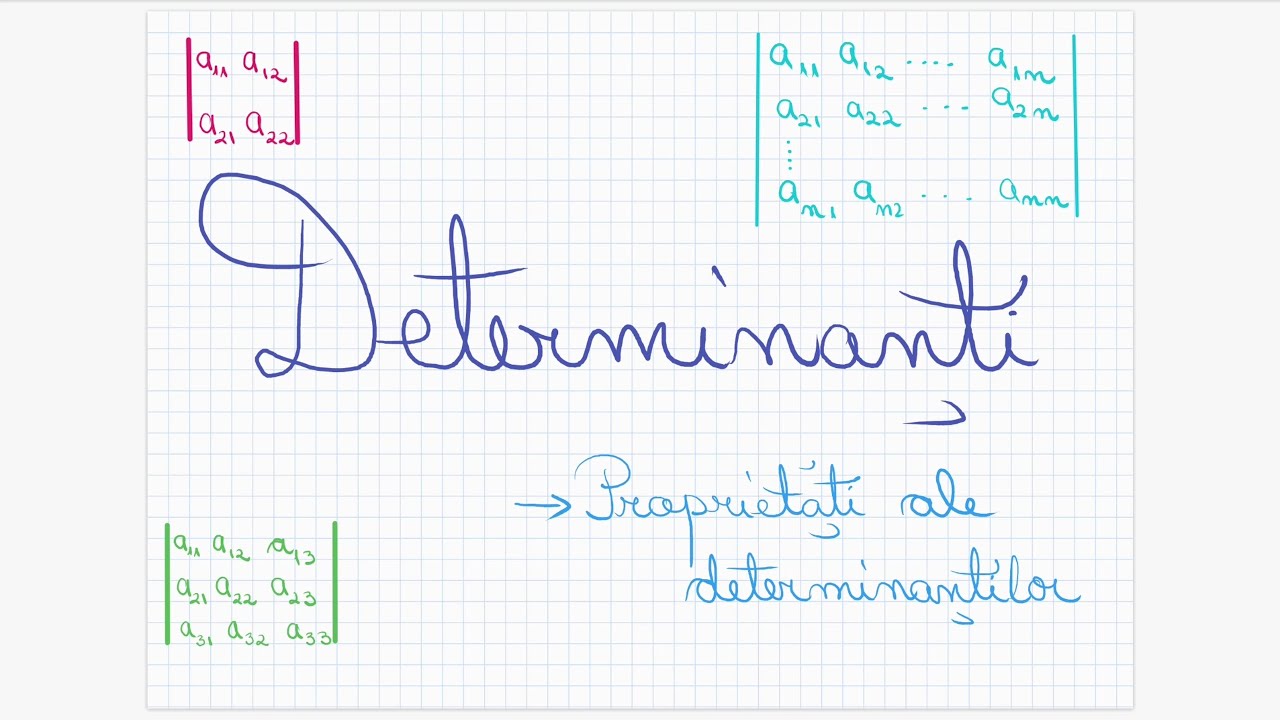 a₁₁ a₁₂
a₂₁ a₂₂
a₁₁ a₁₂ .... a₁ₙ
a₂₁ a₂₂ ... a₂ₙ
⋮
aₙ₁ aₙ₂ ... aₙₙ
Determinanți
→ Proprietăți ale
determinanților
a₁₁ a₁₂ a₁₃
a₂₁ a₂₂ a₂₃
a₃₁ a₃₂ a₃₃